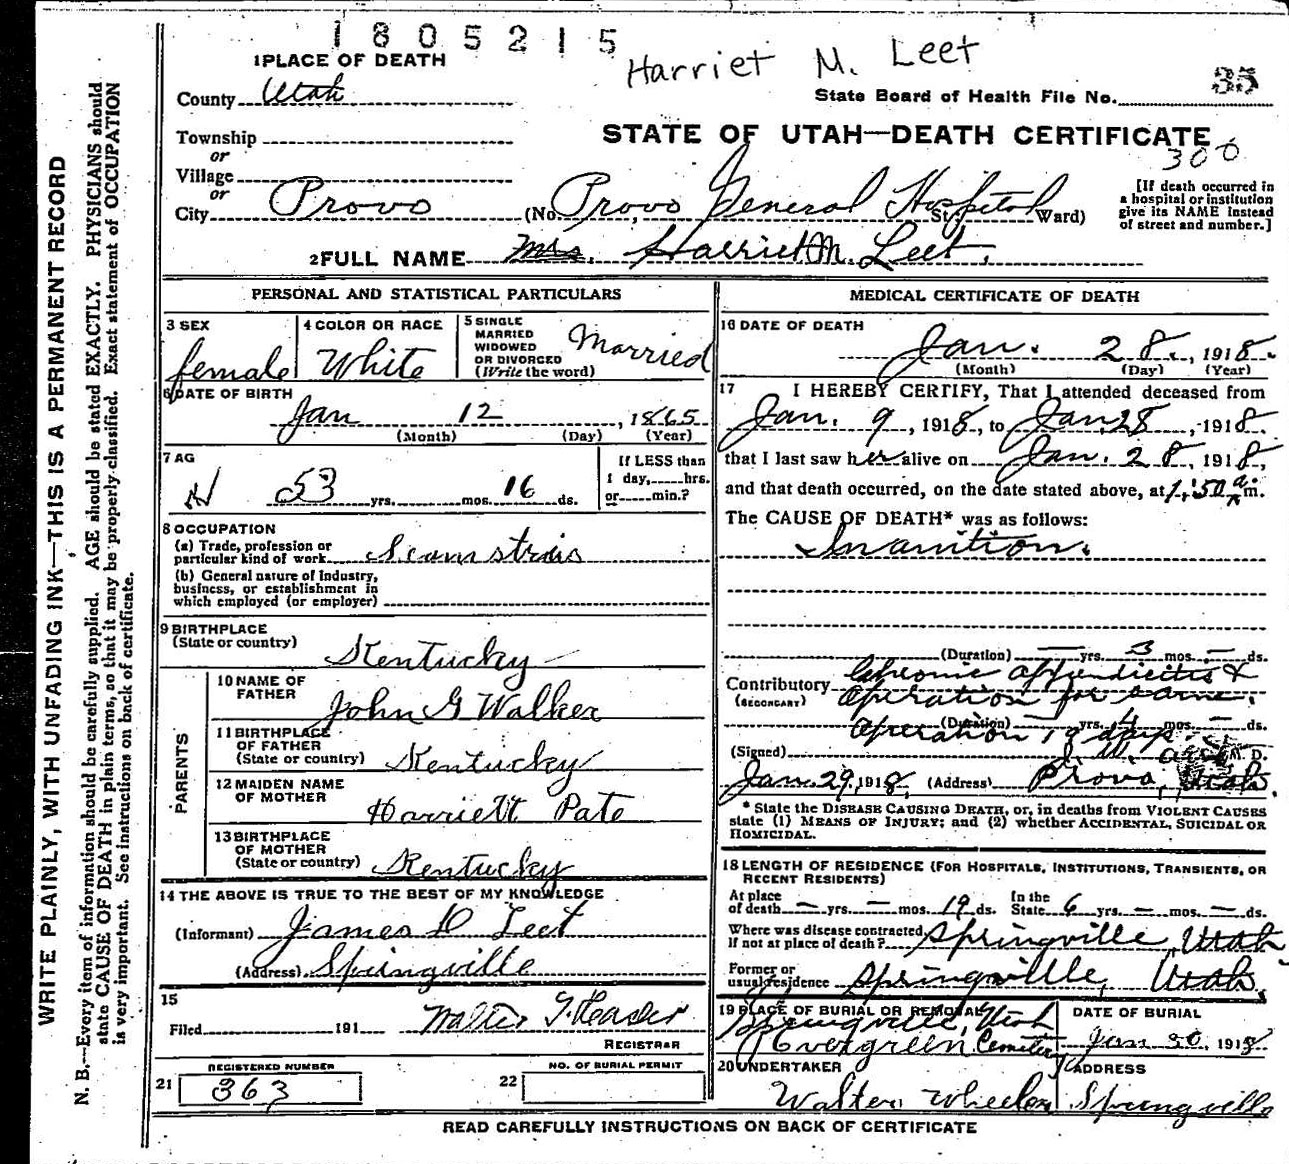 1805215
Harriet M. Leet
1 PLACE OF DEATH
35
County Utah
State Board of Health File No.
Township
STATE OF UTAH—DEATH CERTIFICATE
300
or
Village
or
City Provo (No. Provo General Hospital St. Ward)
[If death occurred in
a hospital or institution
give its NAME instead
of street and number.]
2 FULL NAME Mrs. Harriet M. Leet.
PERSONAL AND STATISTICAL PARTICULARS
3 SEX
female
4 COLOR OR RACE
White
5 SINGLE
MARRIED
WIDOWED
OR DIVORCED
(Write the word)
Married
6 DATE OF BIRTH
Jan 12, 1865
(Month) (Day) (Year)
7 AG
53 yrs. mos. 16 ds.
If LESS than
1 day, hrs.
or min.?
8 OCCUPATION
(a) Trade, profession or
particular kind of work Seamstriss
(b) General nature of industry,
business, or establishment in
which employed (or employer)
9 BIRTHPLACE
(State or country)
Kentucky
PARENTS
10 NAME OF
FATHER
John G Walker
11 BIRTHPLACE
OF FATHER
(State or country) Kentucky
12 MAIDEN NAME
OF MOTHER
Harriett Pate
13 BIRTHPLACE
OF MOTHER
(State or country) Kentucky
14 THE ABOVE IS TRUE TO THE BEST OF MY KNOWLEDGE
(Informant) James D Leet
(Address) Springville
15
Filed 191
REGISTRAR
REGISTERED NUMBER
21 363
NO. OF BURIAL PERMIT
22
MEDICAL CERTIFICATE OF DEATH
16 DATE OF DEATH
Jan. 28, 1918.
(Month) (Day) (Year)
17 I HEREBY CERTIFY, That I attended deceased from
Jan. 9, 1918, to Jan 28, 1918.
that I last saw her alive on Jan. 28, 1918,
and that death occurred, on the date stated above, at 1:50 a m.
The CAUSE OF DEATH* was as follows:
Inanition.
(Duration) — yrs. 3 mos. — ds.
Contributory Chronic appendicitis &
(SECONDARY) operation for same.
(Duration) — yrs. 4 mos. — ds.
operation 19 days
(Signed) M. D.
Jan 29, 1918, (Address) Provo, Utah.
* State the DISEASE CAUSING DEATH, or, in deaths from VIOLENT CAUSES
state (1) MEANS OF INJURY; and (2) whether ACCIDENTAL, SUICIDAL OR
HOMICIDAL.
18 LENGTH OF RESIDENCE (FOR HOSPITALS, INSTITUTIONS, TRANSIENTS, OR
RECENT RESIDENTS)
At place
of death — yrs. — mos. 19 ds.
In the
State 6 yrs. — mos. — ds.
Where was disease contracted
If not at place of death? Springville, Utah
Former or
usual residence Springville, Utah.
19 PLACE OF BURIAL OR REMOVAL
Springville, Utah
Evergreen Cemetery
DATE OF BURIAL
Jan 30, 1918
20 UNDERTAKER
Walter Wheeler
ADDRESS
Springville
READ CAREFULLY INSTRUCTIONS ON BACK OF CERTIFICATE
WRITE PLAINLY, WITH UNFADING INK—THIS IS A PERMANENT RECORD
N. B.—Every item of information should be carefully supplied. AGE should be stated EXACTLY. PHYSICIANS should
state CAUSE OF DEATH in plain terms, so that it may be properly classified. Exact statement of OCCUPATION
is very important. See instructions on back of certificate.